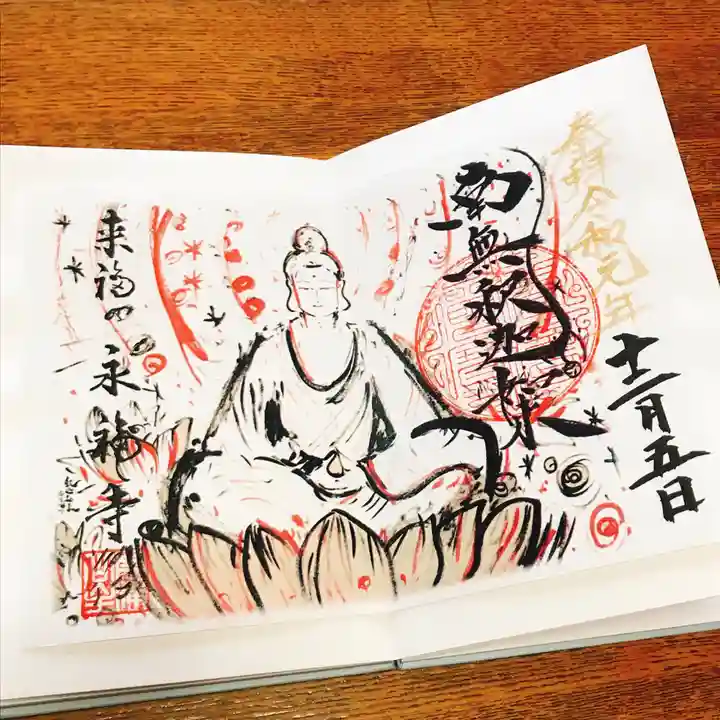 奉拝令和元年
十二月五日
南無釈迦如来
来福の永福寺